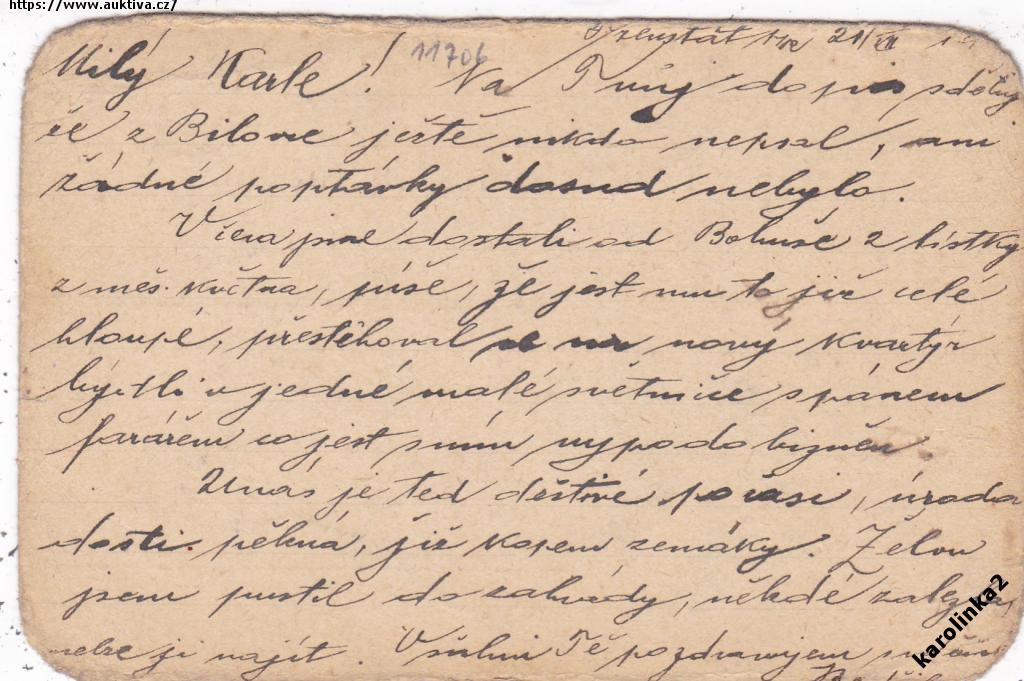 https://www.auktiva.cz/
21/VII
Milý Karle! 11706 Na Tvůj dopis sděluj
že z Bilovce ještě nikdo nepsal, ani
žádné poptávky dosud nebylo.
Včera jsme dostali od Bohuše 2 lístky
z měs. května, píše, že jest mu to již celé
hloupé, přestěhoval se na nový kvartýr
bydlí v jedné malé světnice s pánem
farářem co jest s ním
U nás je teď deštivé počasí, úroda
dosti pěkná, již kopem zemáky. Želvu
jsem pustil do zahrády, někdě
nelze ji najít. Všichni Tě pozdravujem
karolinka2